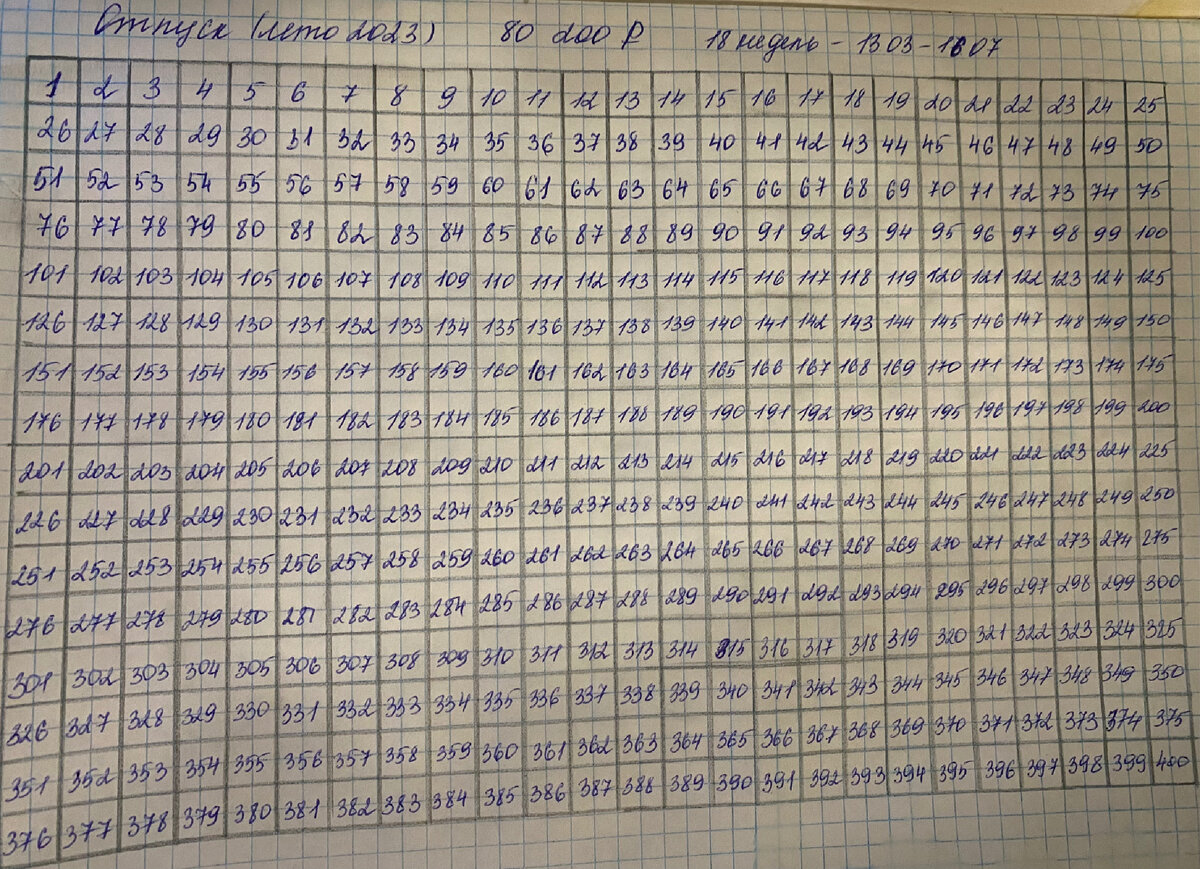 Отпуск (лето 2023) 80 200 ₽ 18 недель - 13 03 - 16 07
1 2 3 4 5 6 7 8 9 10 11 12 13 14 15 16 17 18 19 20 21 22 23 24 25
26 27 28 29 30 31 32 33 34 35 36 37 38 39 40 41 42 43 44 45 46 47 48 49 50
51 52 53 54 55 56 57 58 59 60 61 62 63 64 65 66 67 68 69 70 71 72 73 74 75
76 77 78 79 80 81 82 83 84 85 86 87 88 89 90 91 92 93 94 95 96 97 98 99 100
101 102 103 104 105 106 107 108 109 110 111 112 113 114 115 116 117 118 119 120 121 122 123 124 125
126 127 128 129 130 131 132 133 134 135 136 137 138 139 140 141 142 143 144 145 146 147 148 149 150
151 152 153 154 155 156 157 158 159 160 161 162 163 164 165 166 167 168 169 170 171 172 173 174 175
176 177 178 179 180 181 182 183 184 185 186 187 188 189 190 191 192 193 194 195 196 197 198 199 200
201 202 203 204 205 206 207 208 209 210 211 212 213 214 215 216 217 218 219 220 221 222 223 224 225
226 227 228 229 230 231 232 233 234 235 236 237 238 239 240 241 242 243 244 245 246 247 248 249 250
251 252 253 254 255 256 257 258 259 260 261 262 263 264 265 266 267 268 269 270 271 272 273 274 275
276 277 278 279 280 281 282 283 284 285 286 287 288 289 290 291 292 293 294 295 296 297 298 299 300
301 302 303 304 305 306 307 308 309 310 311 312 313 314 315 316 317 318 319 320 321 322 323 324 325
326 327 328 329 330 331 332 333 334 335 336 337 338 339 340 341 342 343 344 345 346 347 348 349 350
351 352 353 354 355 356 357 358 359 360 361 362 363 364 365 366 367 368 369 370 371 372 373 374 375
376 377 378 379 380 381 382 383 384 385 386 387 388 389 390 391 392 393 394 395 396 397 398 399 400